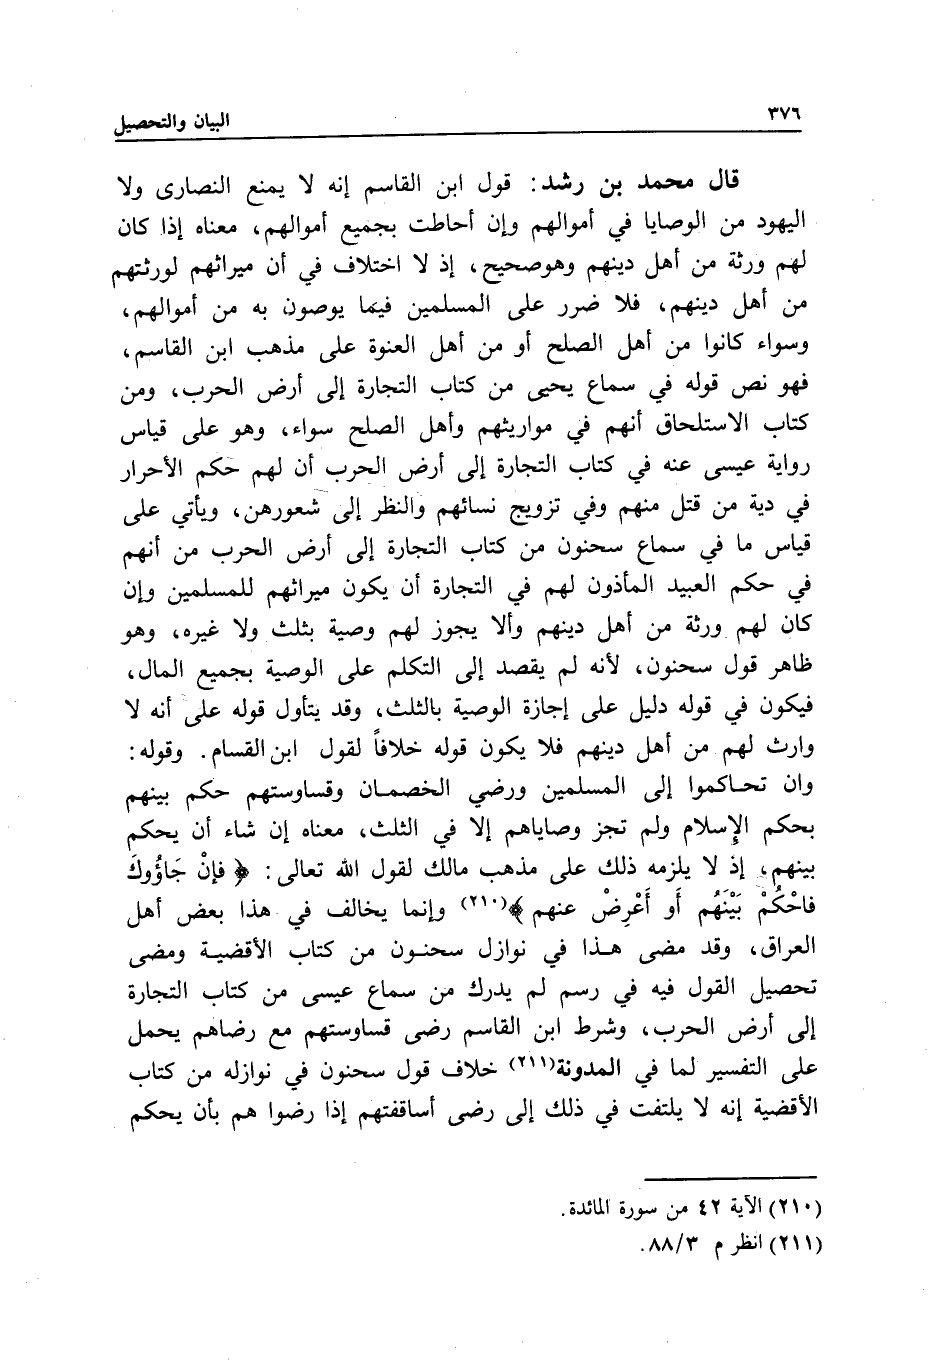 ٣٧٦
البيان والتحصيل
قال محمد بن رشد: قول ابن القاسم إنه لا يمنع النصارى ولا
اليهود من الوصايا في أموالهم وإن أحاطت بجميع أموالهم، معناه إذا كان
لهم ورثة من أهل دينهم وهوصحيح، إذ لا اختلاف في أن ميراثهم لورثتهم
من أهل دينهم، فلا ضرر على المسلمين فيما يوصون به من أموالهم،
وسواء كانوا من أهل الصلح أو من أهل العنوة على مذهب ابن القاسم،
فهو نص قوله في سماع يحيى من كتاب التجارة إلى أرض الحرب، ومن
كتاب الاستلحاق أنهم في مواريثهم وأهل الصلح سواء، وهو على قياس
رواية عيسى عنه في كتاب التجارة إلى أرض الحرب أن لهم حكم الأحرار
في دية من قتل منهم وفي تزويج نسائهم والنظر إلى شعورهن، ويأتي على
قياس ما في سماع سحنون من كتاب التجارة إلى أرض الحرب من أنهم
في حكم العبيد المأذون لهم في التجارة أن يكون ميراثهم للمسلمين وإن
كان لهم ورثة من أهل دينهم وألا يجوز لهم وصية بثلث ولا غيره، وهو
ظاهر قول سحنون، لأنه لم يقصد إلى التكلم على الوصية بجميع المال،
فيكون في قوله دليل على إجازة الوصية بالثلث، وقد يتأول قوله على أنه لا
وارث لهم من أهل دينهم فلا يكون قوله خلافاً لقول ابن القسام. وقوله:
وان تحاكموا إلى المسلمين ورضي الخصمان وقساوستهم حكم بينهم
بحكم الإسلام ولم تجز وصاياهم إلا في الثلث، معناه إن شاء أن يحكم
بينهم، إذ لا يلزمه ذلك على مذهب مالك لقول الله تعالى: ﴿فإنْ جَاؤُوكَ
فاحْكُمْ بَيْنَهُم أَو أَعْرِضْ عنهم﴾(٢١٠) وإنما يخالف في هذا بعض أهل
العراق، وقد مضى هذا في نوازل سحنون من كتاب الأقضية ومضى
تحصيل القول فيه في رسم لم يدرك من سماع عيسى من كتاب التجارة
إلى أرض الحرب، وشرط ابن القاسم رضى قساوستهم مع رضاهم يحمل
على التفسير لما في المدونة(٢١١) خلاف قول سحنون في نوازله من كتاب
الأقضية إنه لا يلتفت في ذلك إلى رضى أساقفتهم إذا رضوا هم بأن يحكم
(٢١٠) الآية ٤٢ من سورة المائدة.
(٢١١) انظر م ٨٨/٣.